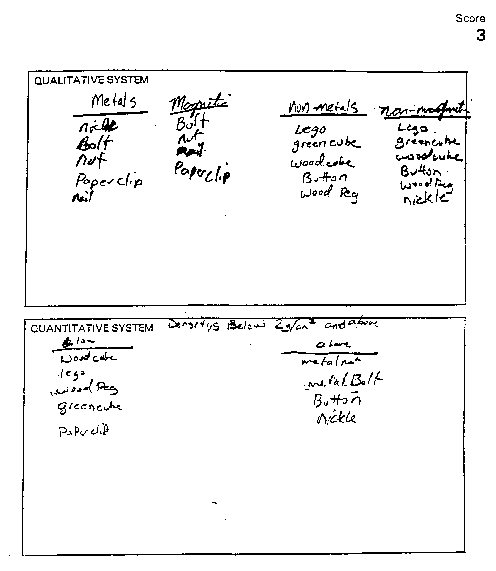 Score
3
QUALITATIVE SYSTEM
Metals Magnetic non-metals non-magnetic
nickle Bolt Lego Lego
Bolt nut greencube greencube
nut woodcube woodcube
Paperclip Paperclip Button Button
nail wood Peg wood Peg
nickle
QUANTITATIVE SYSTEM Densitys Below 2g/cm³ and above
Below above
woodcube metal nut
lego metal Bolt
wood Peg Button
greencube nickle
Paperclip